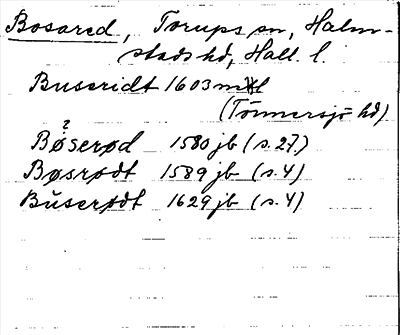 Bosared, Torups sn, Halm-
stads hd, Hall. l.
Buseridt 1603 mtl
(Tönnersjö hd)
?
Bøserød 1580 jb (s. 27.)
Bøsrødt 1589 jb (s. 4)
Buserødt 1629 jb (s. 4)